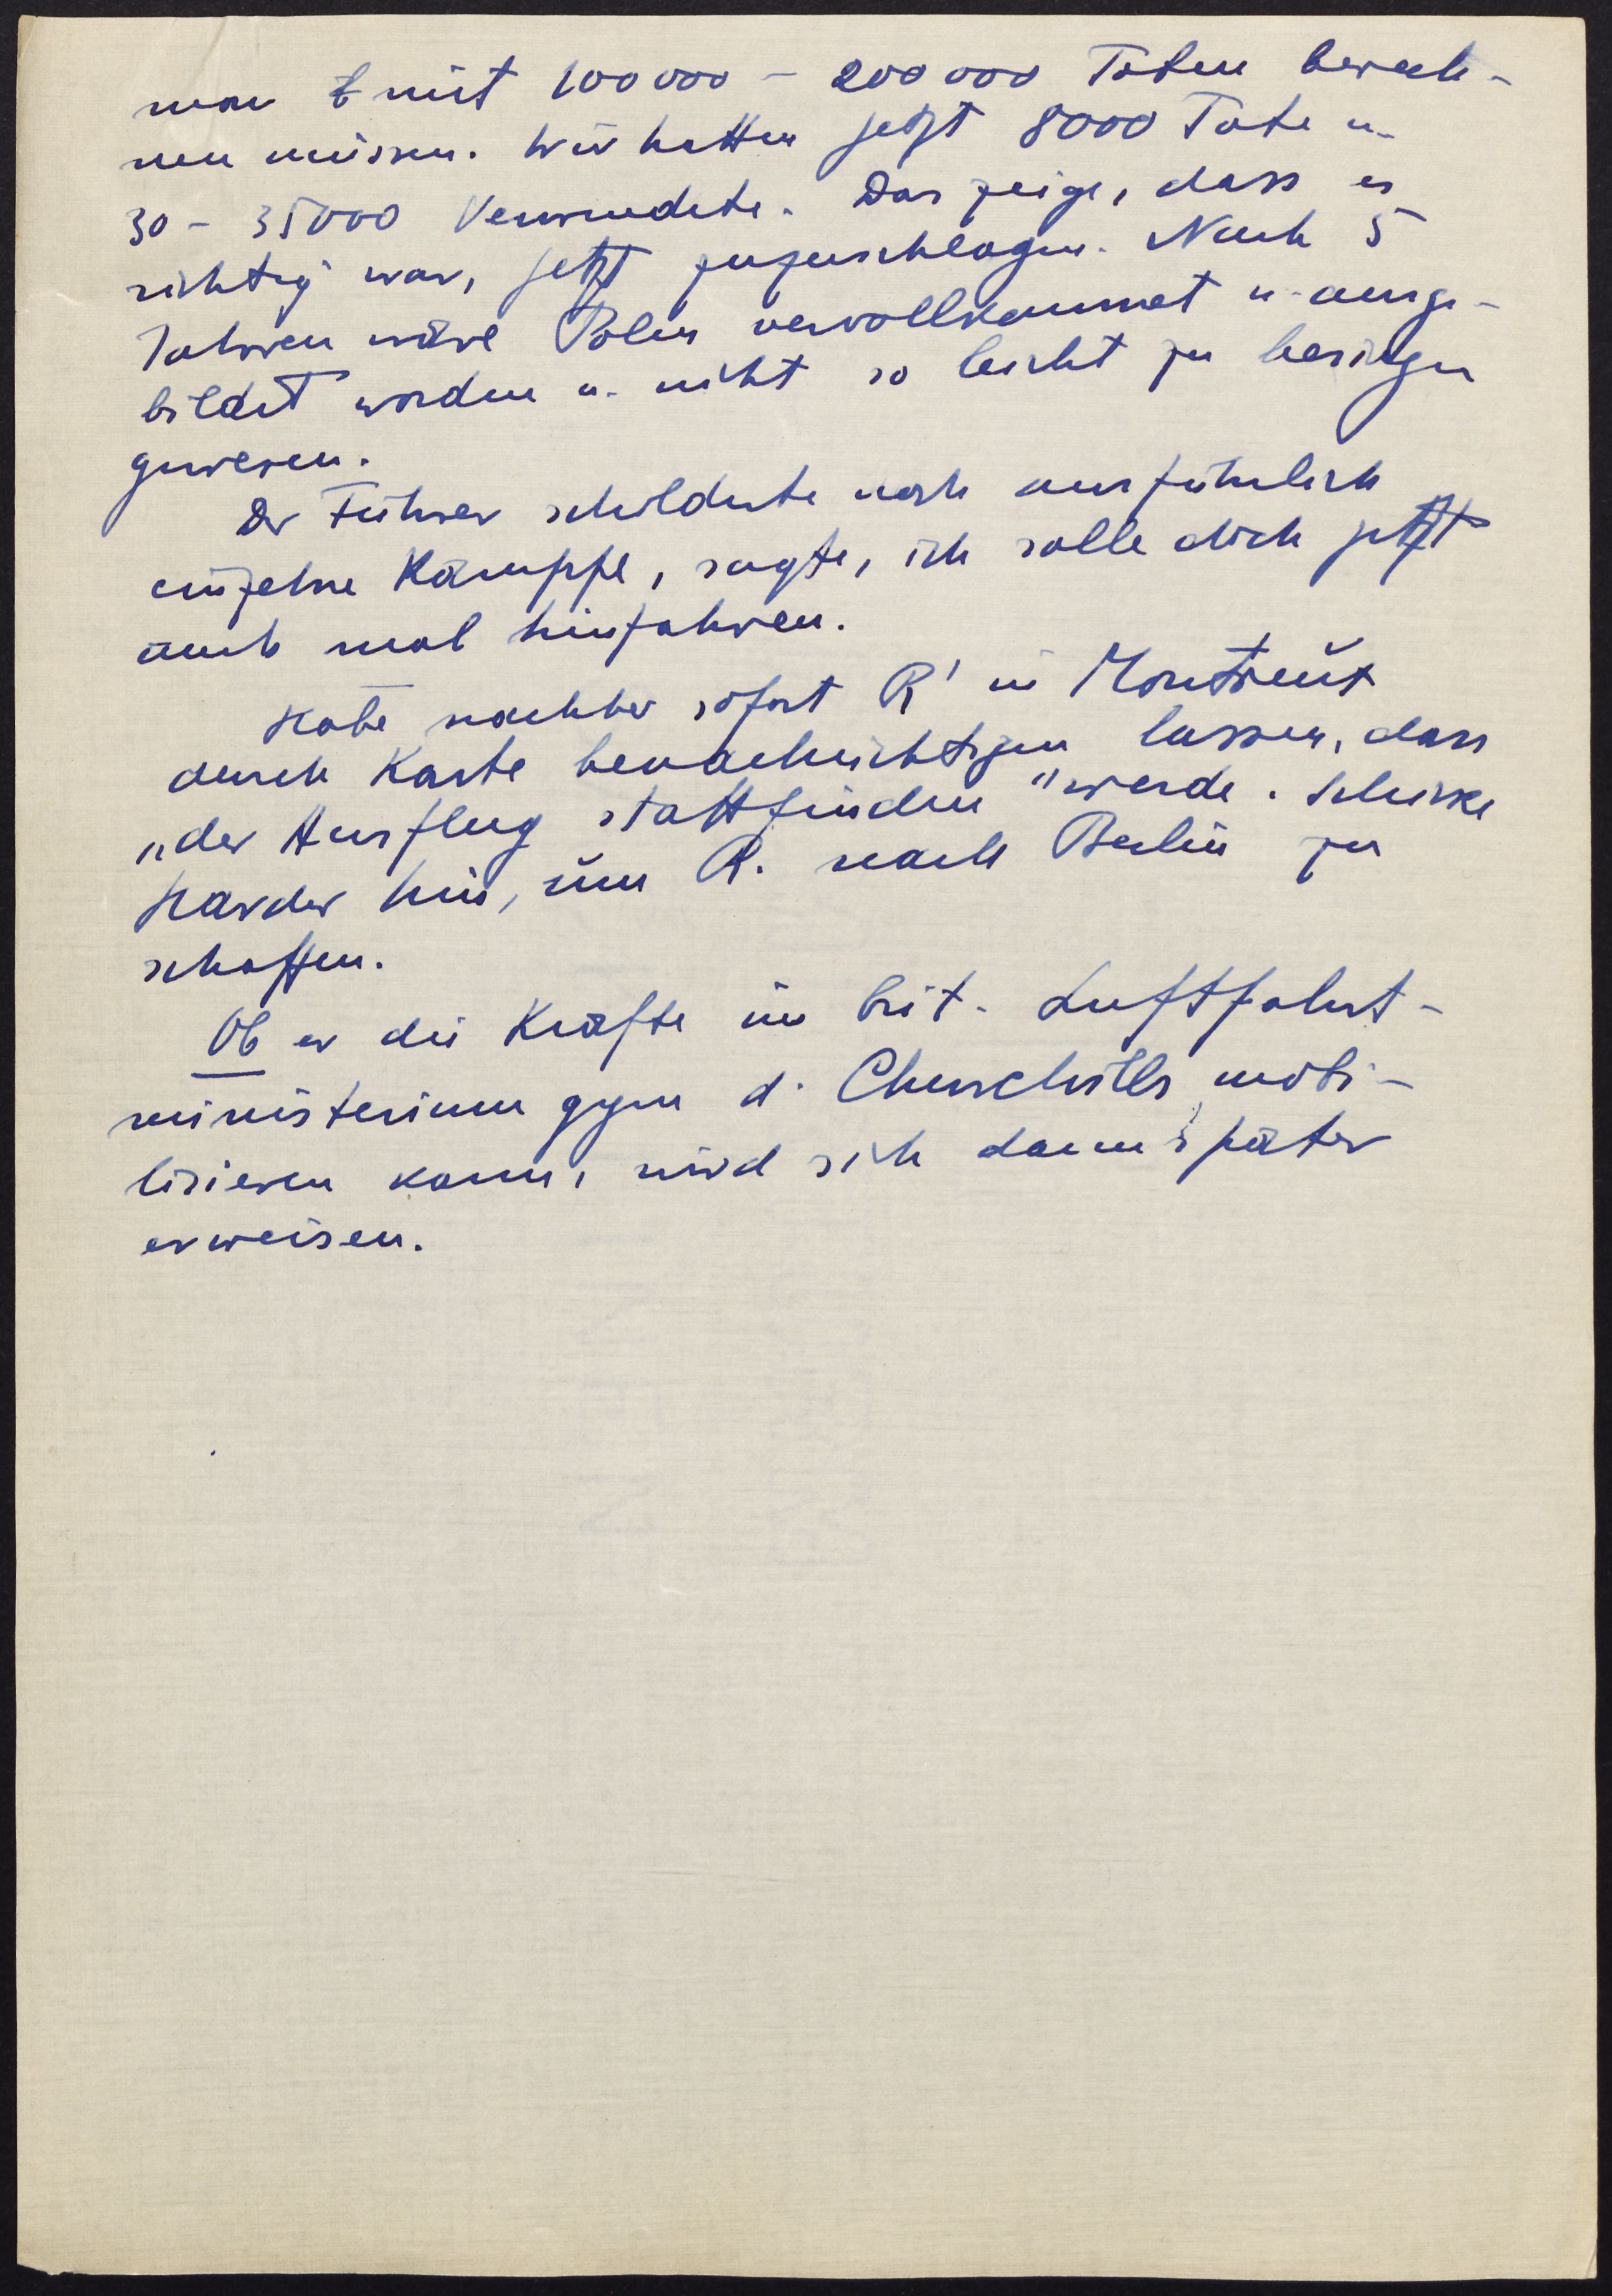 man mit 100000 – 200000 Toten berech-
nen müssen. Wir hatten jetzt 8000 Tote u.
30 – 35000 Verwundete. Das zeige, dass es
richtig war, jetzt zuzuschlagen. Nach 5
Jahren wäre Polen vervollkommnet u. ausge-
bildet worden u. nicht so leicht zu besiegen
gewesen.
Der Führer schilderte noch ausführlich
einzelne Kämpfe, sagte, ich solle doch jetzt
auch mal hinfahren.
Habe nachher sofort R' in Montreux
durch Karte benachrichtigen lassen, dass
„der Ausflug stattfinden" werde. Schicke
Harder hin, um R. nach Berlin zu
schaffen.
Ob er die Kräfte im brit. Luftfahrt-
ministerium gegen d. Churchills mobi-
lisieren kann, wird sich dann später
erweisen.